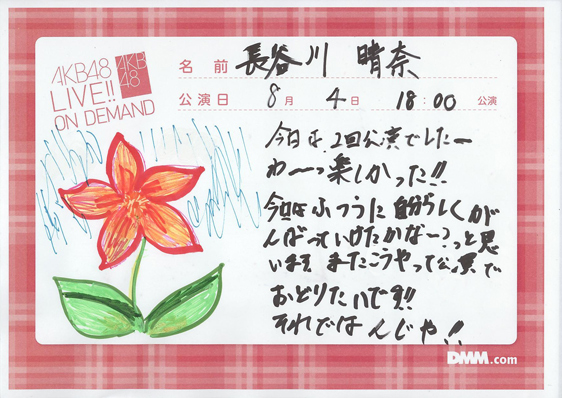 AKB48
LIVE!!
ON DEMAND
AKB
48
名 前 長谷川 晴奈
公演日 8月 4日 18:00 公演
今日は、2回公演でしたー
わーっ楽しかった!!
今日はふつうに自分らしくが
んばっていけたかなー?っと思
います またこうやって公演で
おどりたいです!!
それでは んじゃ!!
DMM.com